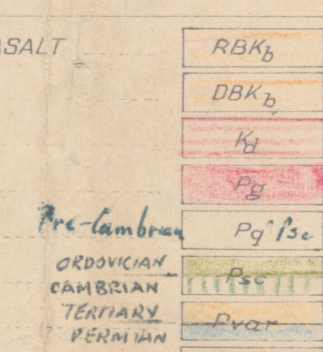 ASALT RBKb
DBKb
Kd
Pg
Pre-Cambrian Pq Psc
ORDOVICIAN Psc
CAMBRIAN
TERTIARY Pvar
PERMIAN